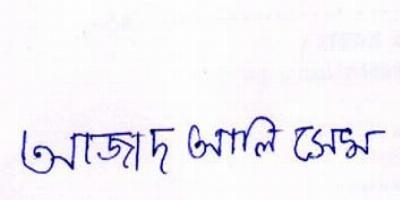 আজাদ আলি সেখ